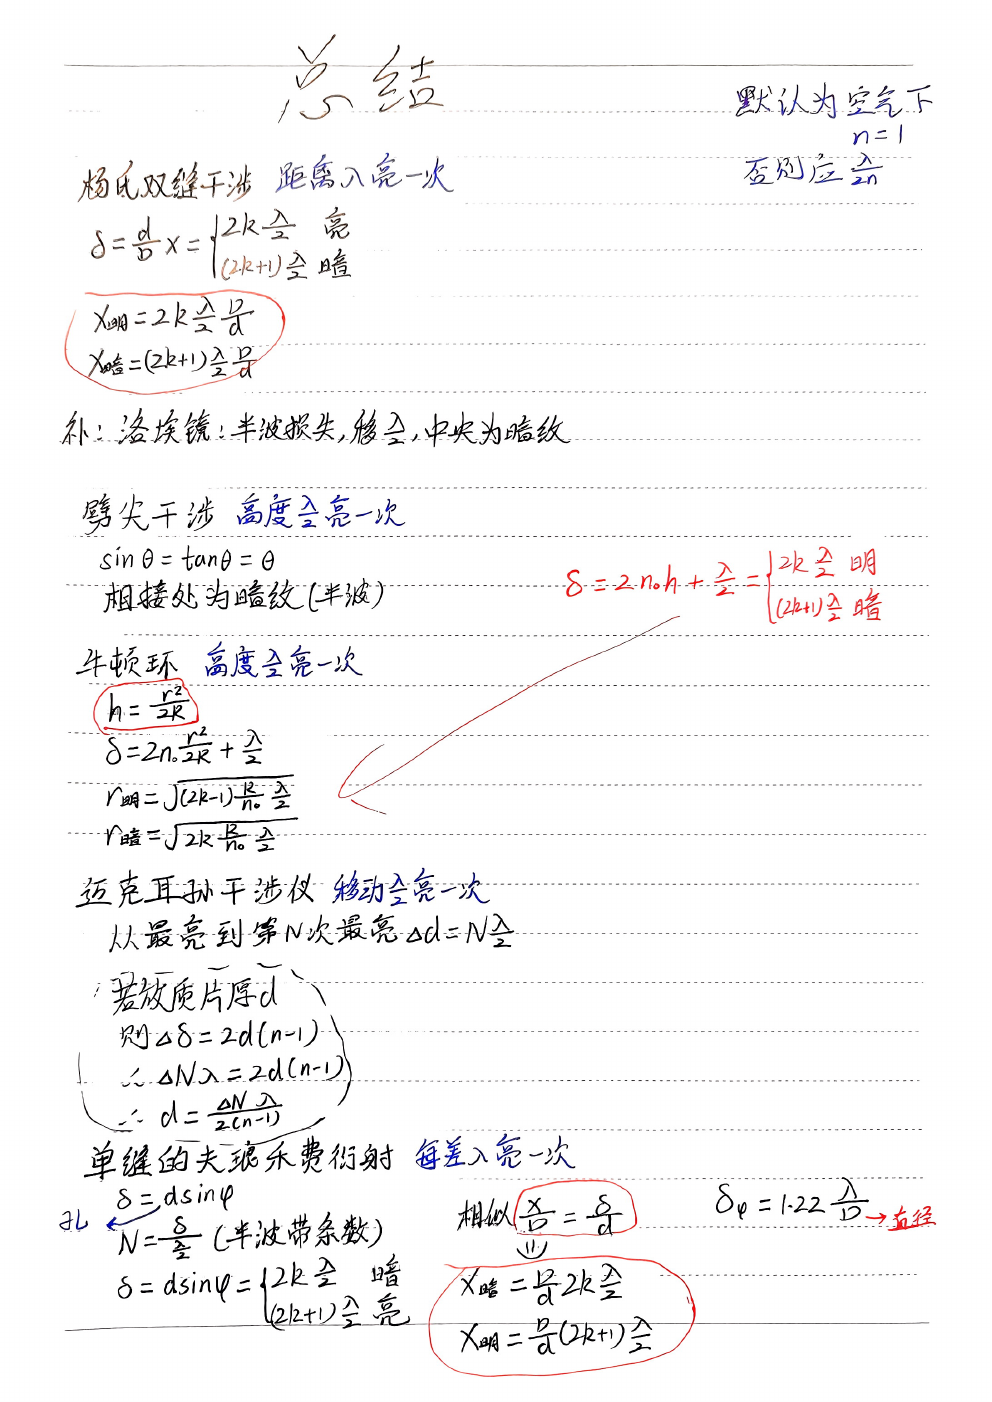 总结
默认为空气下
n=1
否则应 λ/2n
杨氏双缝干涉 距离λ亮一次
δ = d/D x = { 2k λ/2 亮
(2k+1) λ/2 暗
x明 = 2k λ/2 D/d
x暗 = (2k+1) λ/2 D/d
补：洛埃镜：半波损失,移 λ/2 ,中央为暗纹
劈尖干涉 高度 λ/2 亮一次
sinθ = tanθ = θ
相接处为暗纹(半波)
δ = 2n₀h + λ/2 = { 2k λ/2 明
(2k+1) λ/2 暗
牛顿环 高度 λ/2 亮一次
h = r²/2R
δ = 2n₀ r²/2R + λ/2
r明 = √((2k-1) R/n₀ λ/2)
r暗 = √(2k R/n₀ λ/2)
迈克耳孙干涉仪 移动 λ/2 亮一次
从最亮到第N次最亮 Δd = N λ/2
若放质片厚d
则 Δδ = 2d(n-1)
∴ ΔNλ = 2d(n-1)
∴ d = ΔNλ/2(n-1)
单缝的夫琅禾费衍射 每差λ亮一次
δ = dsinφ
孔
N = δ/(λ/2) (半波带条数)
δ = dsinφ = { 2k λ/2 暗
(2k+1) λ/2 亮
相似 x/D = δ/d
x暗 = D/d 2k λ/2
x明 = D/d (2k+1) λ/2
δφ = 1.22 λ/D → 直径